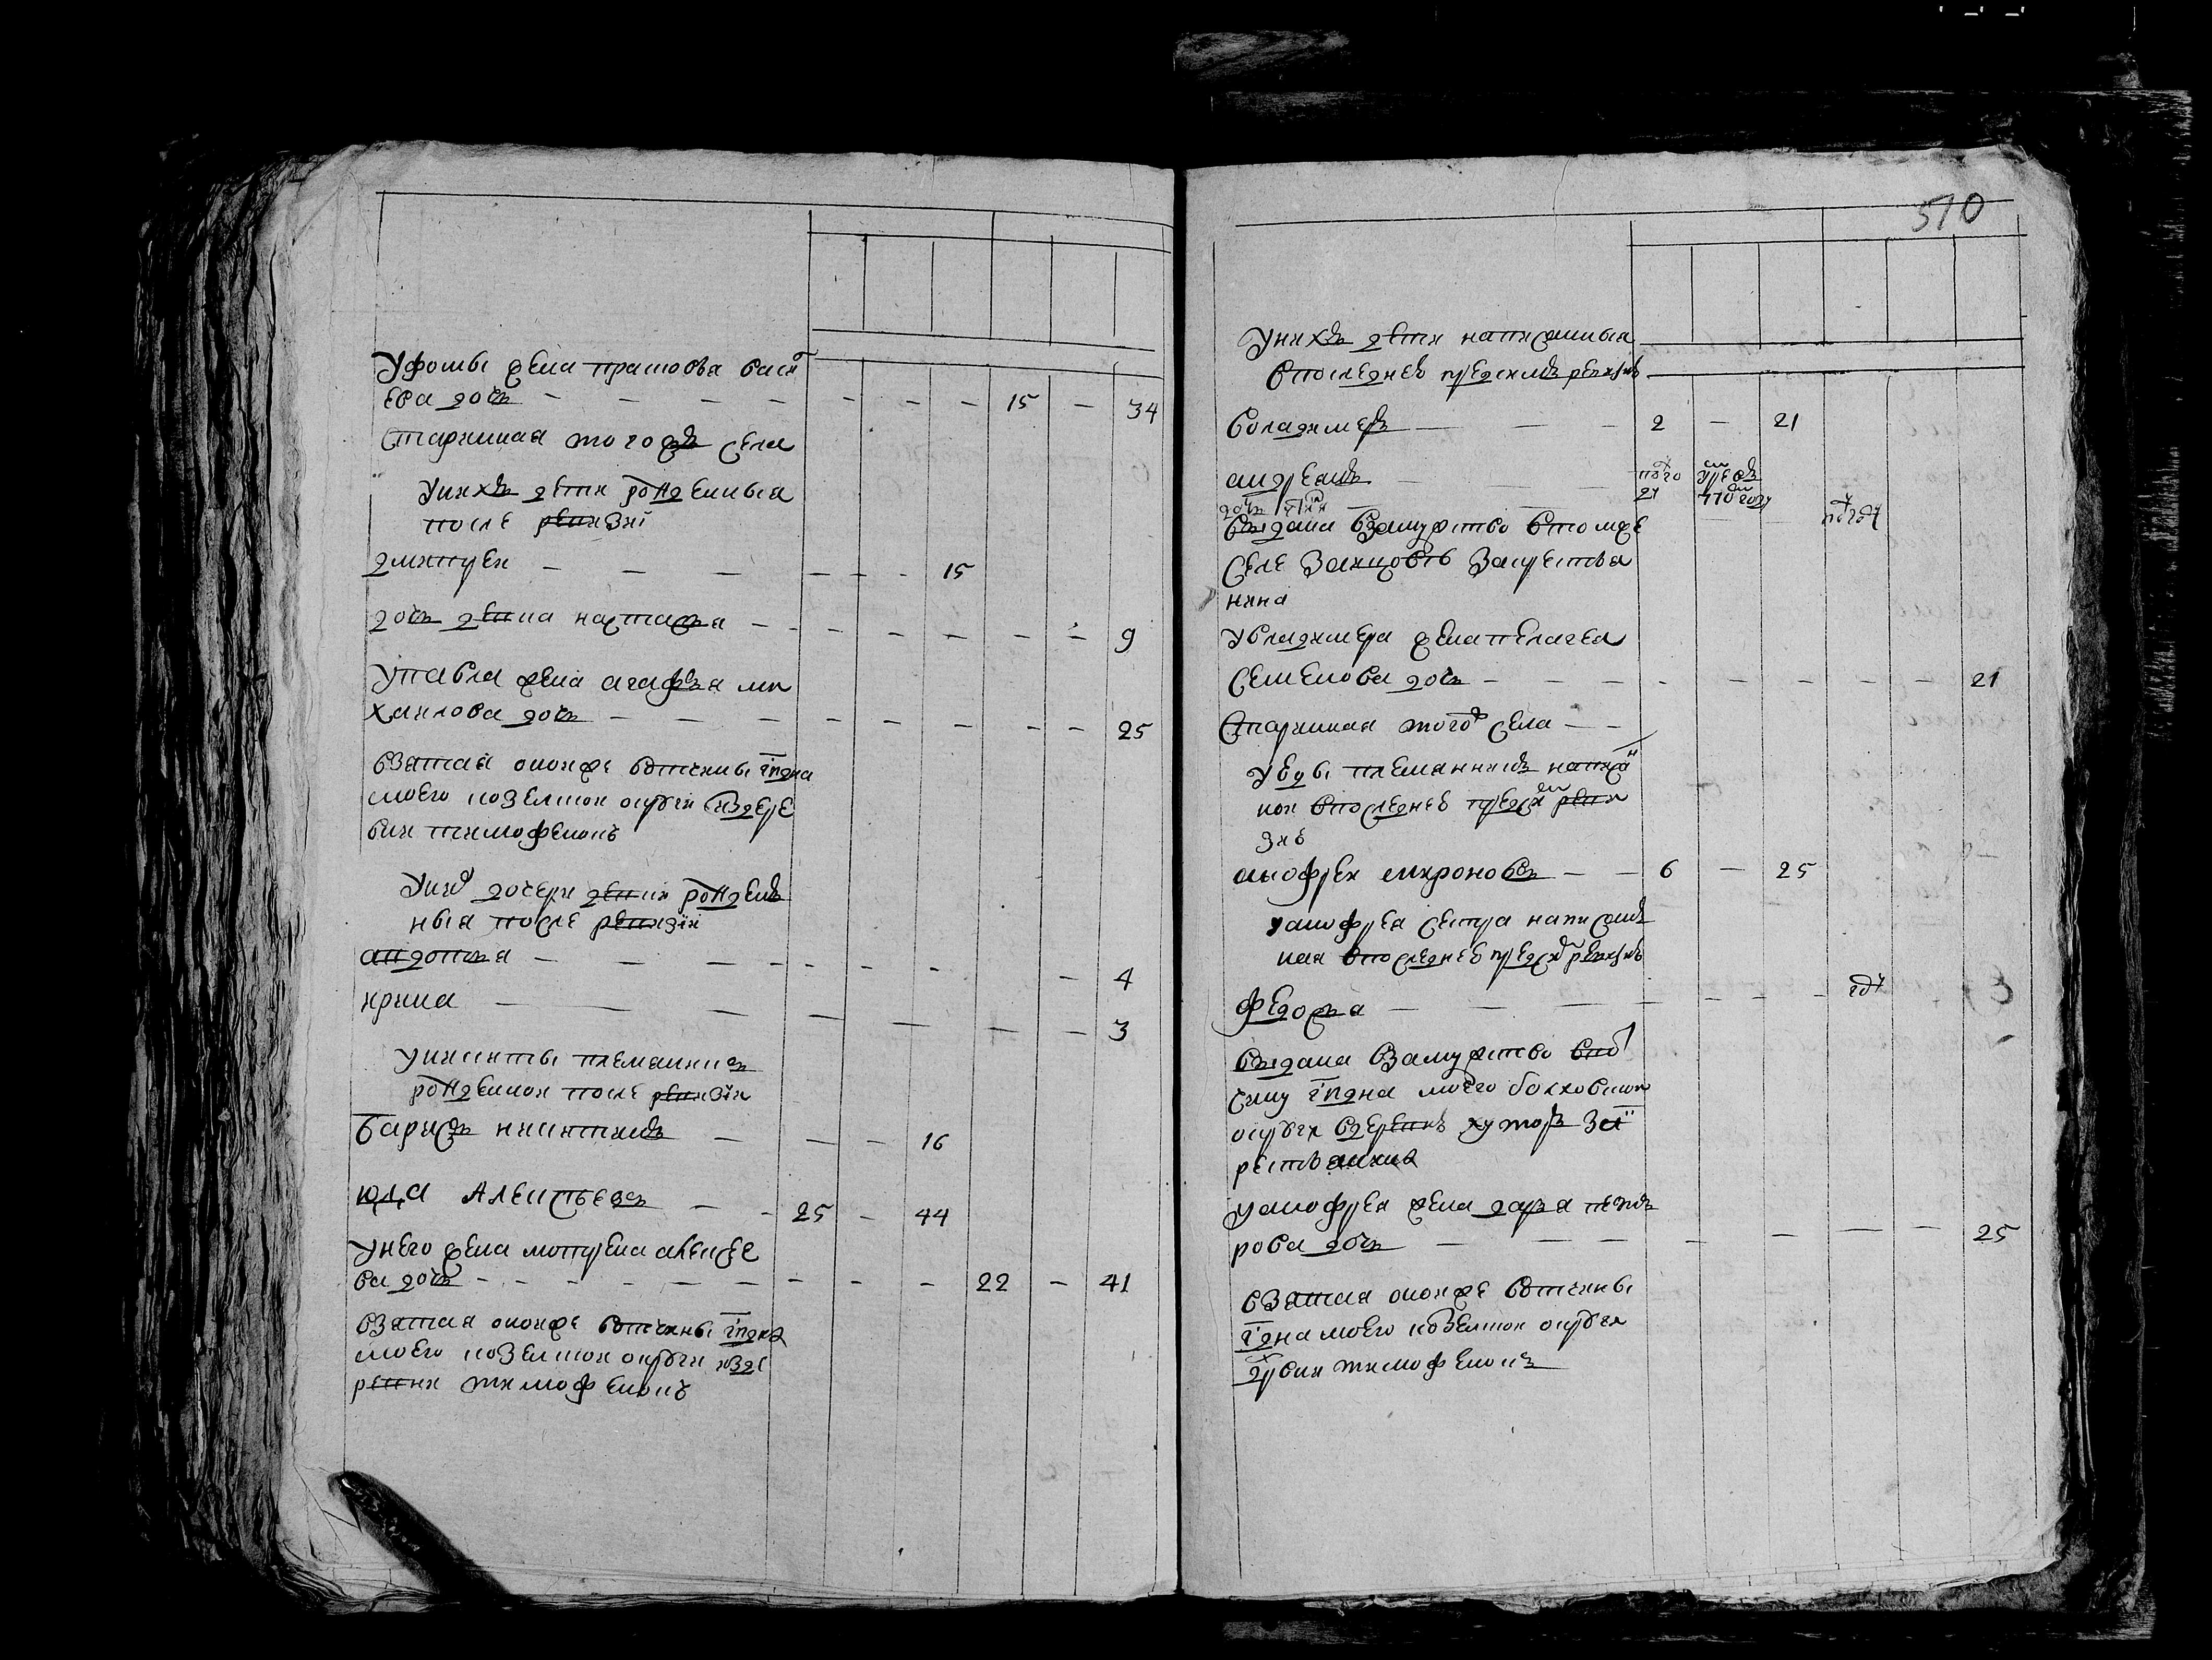 510
Уфомы жена прасковья васил
ева дочь — — — — — — — 15 — 34
старинная тогожъ села
Унихъ дети рожденныя
после ревизиі
дмитрей — — — — — — 15
дочь девка настасья — — — — — — — 9
Упавла жена агафья ми
хаилова дочь — — — — — — — — 25
взятая оконже вотчины гпдна
моего козелской округи издере
вни тимофеевки
Унихъ дочери девки рожденъ
ныя после ревизіи
авдотья — — — — — — — — 4
ирина — — — — — — — — 3
Уникиты племянникъ
рожденной после ревизіи
барисъ никитинъ — — — 16
Илья Алексѣевъ — — 25 — 44
Унего жена мотрена алексѣе
ва дочь — — — — — — — — — 22 — 41
взятая оконже вотчины гпдна
моего козелской округи изде
ревни тимофеевки
Унихъ дети написанныя
впоследнеѣ предсимъ ревизиѣ
володимеръ — — — 2 — 21
андреянъ — — —
выдана взамужство втомже
селе заикрестья
нина
Увладимера жена пелагея
семенова дочь — — — — — — — — 21
старинная тогож села — —
племянникъ написа
ной впоследнеѣ предси реви
зиѣ
анофрей мироновъ — — 6 — 25
уанофрея сестра написанъ
ная впоследнеѣ предсим ревизиѣ
федосья — — — — — — —
выдана взамужство ввот
чину гпдна моего болховской
округи вдеревнѣ хуторъ зак
рестьянина
уанофрея жена дарья пет
рова дочь — — — — — — — 25
взятая оконже вотчины
гпдна моего козелской округи
дрвни тимофеевки